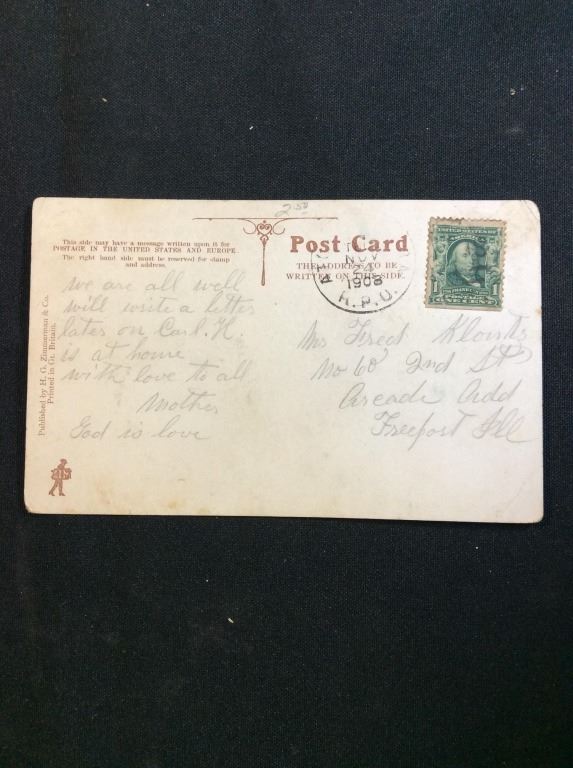 2.50
This side may have a message written upon it for
POSTAGE IN THE UNITED STATES AND EUROPE.
The right hand side must be reserved for stamp
and address.
Post Card
THE ADDRESS TO BE
WRITTEN ON THIS SIDE.
NOV
1908
R.P.O.
UNITED STATES OF
AMERICA
FRANKLIN
POSTAGE
1 ONE CENT 1
we are all well
will write a letter
later on Carl. H.
is at home
with love to all
Mother
God is love
Mrs Fred
No 60 2nd St
Arcade Add
Freeport Ill
Published by H. G. Zimmerman & Co.
Printed in Gt. Britain.